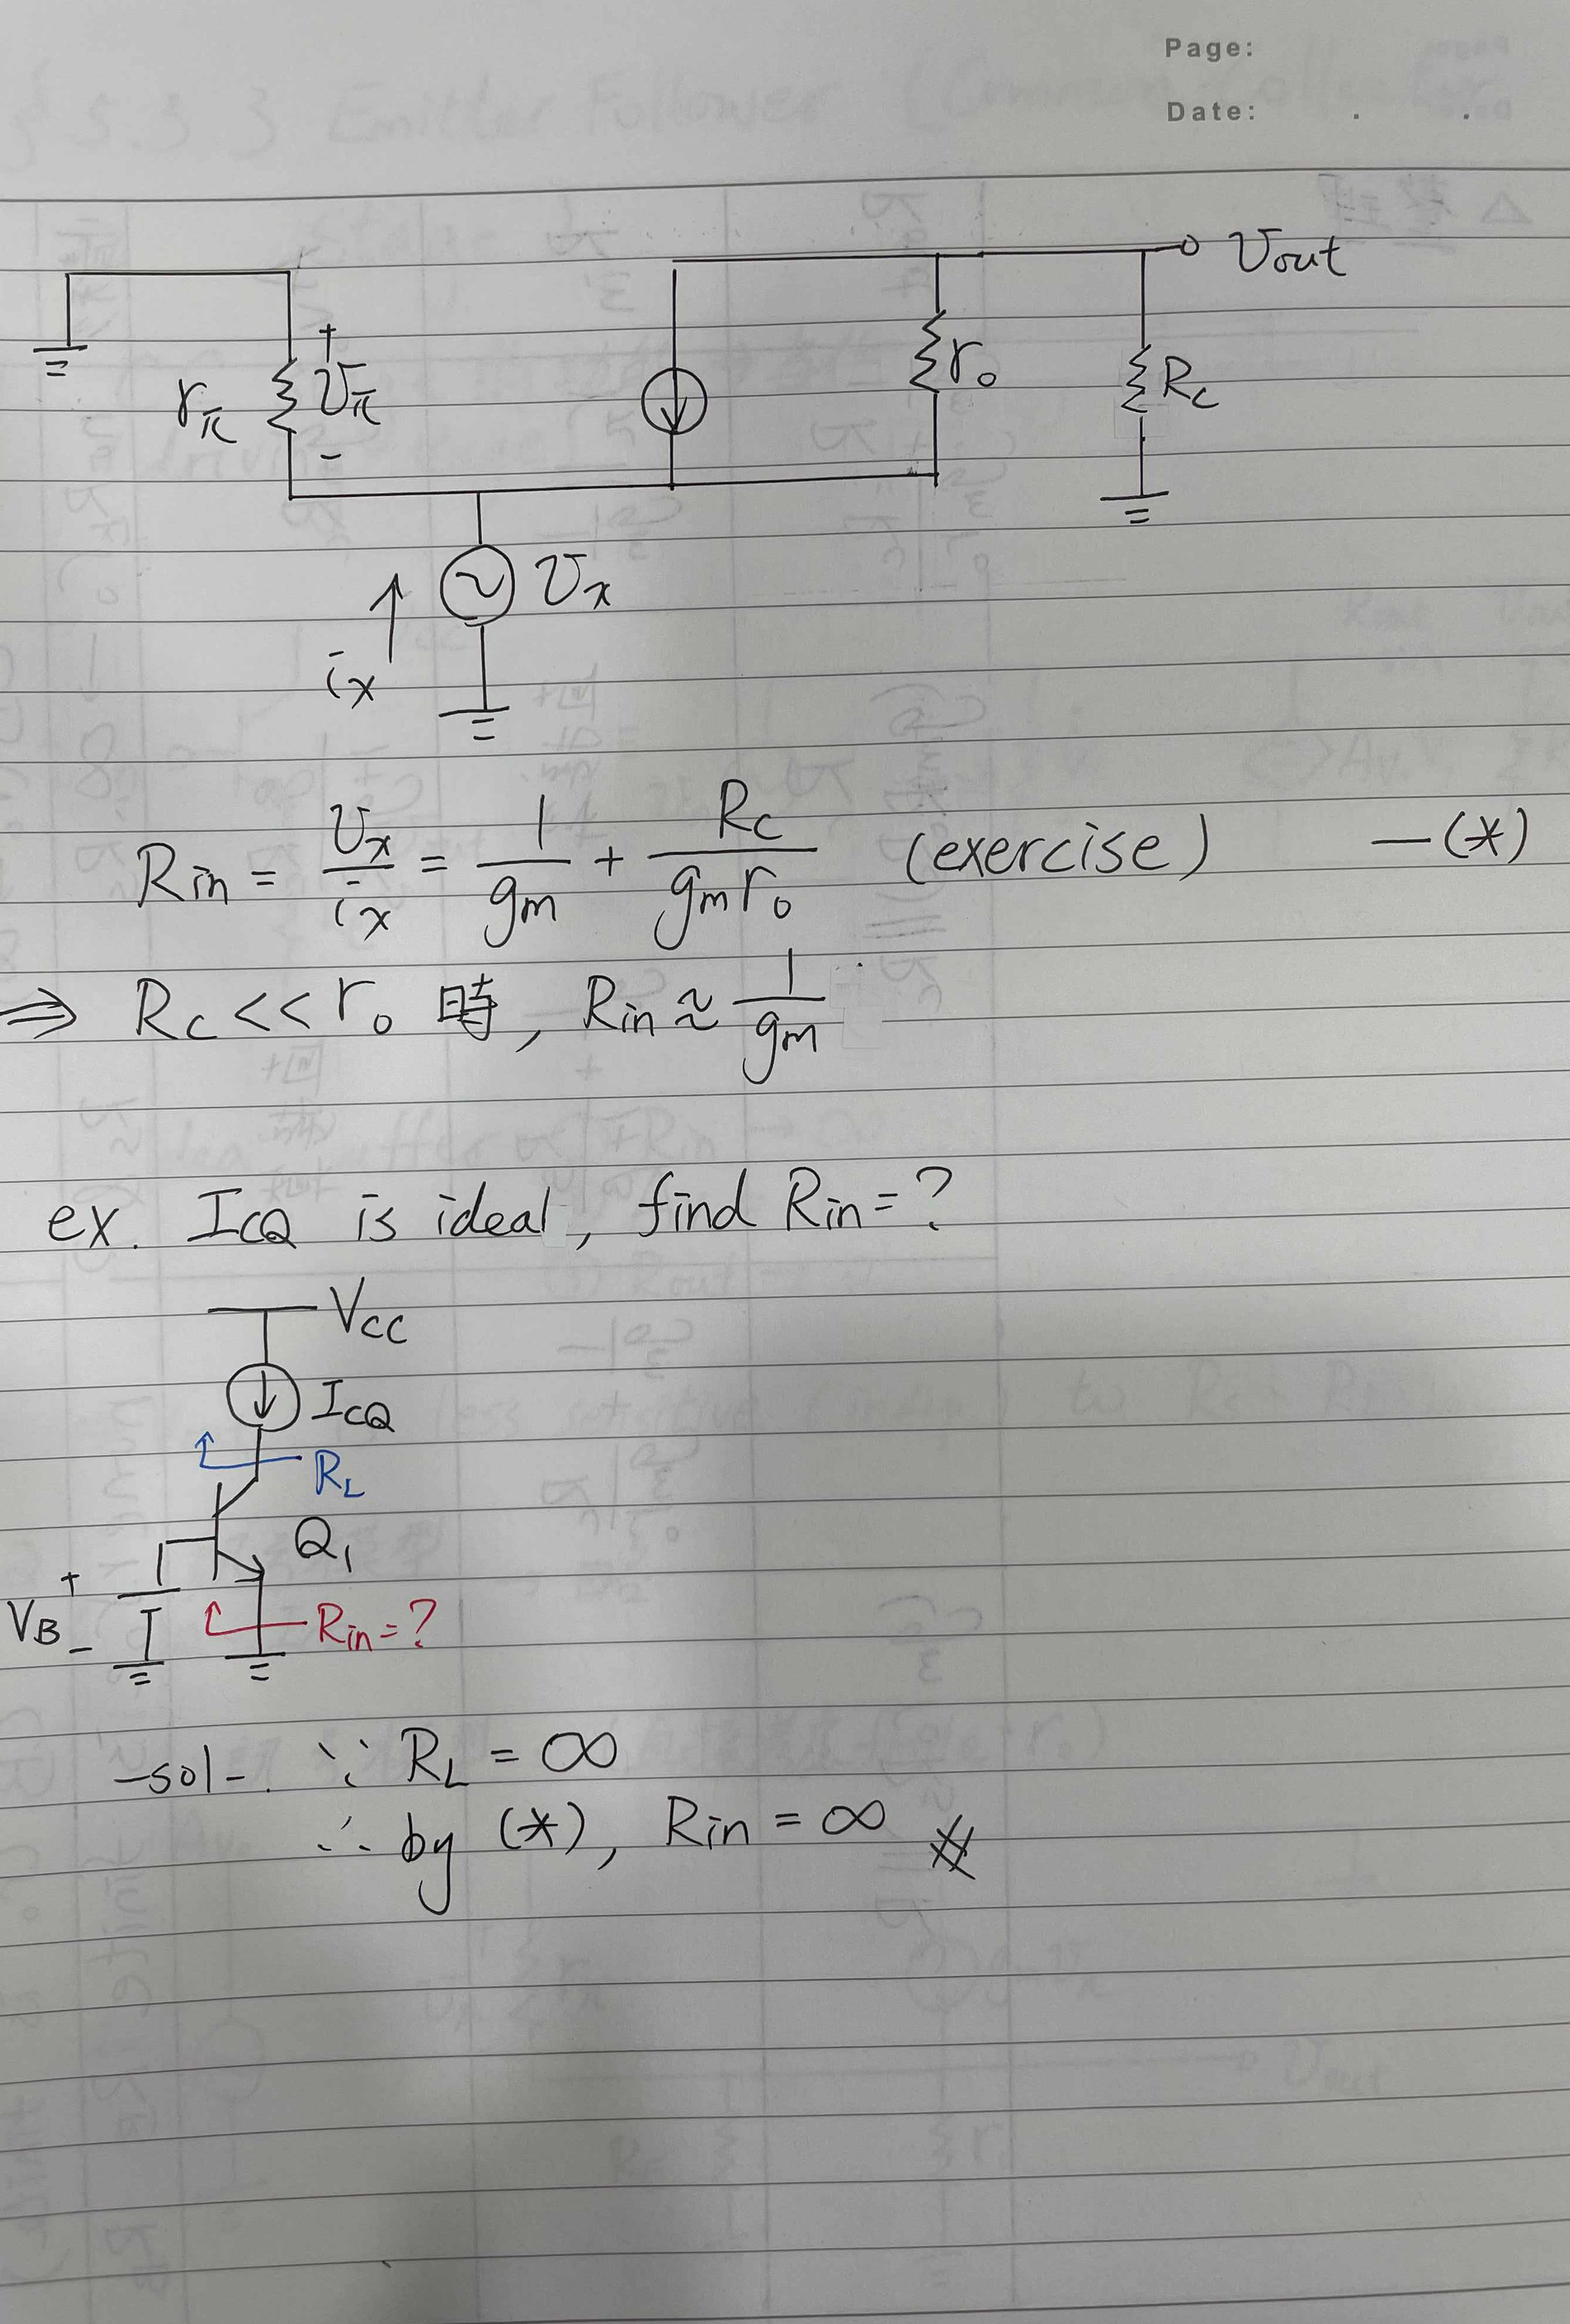 Page:
Date: . .
Vout
rπ + vπ - ro Rc
vx
ix
Rin = vx/ix = 1/gm + Rc/(gm ro) (exercise) —(*)
⇒ Rc << ro 時, Rin ≈ 1/gm
ex. ICQ is ideal, find Rin = ?
VCC
ICQ
RL
Q1
VB + - Rin = ?
-sol-. ∵ RL = ∞
∴ by (*), Rin = ∞ #